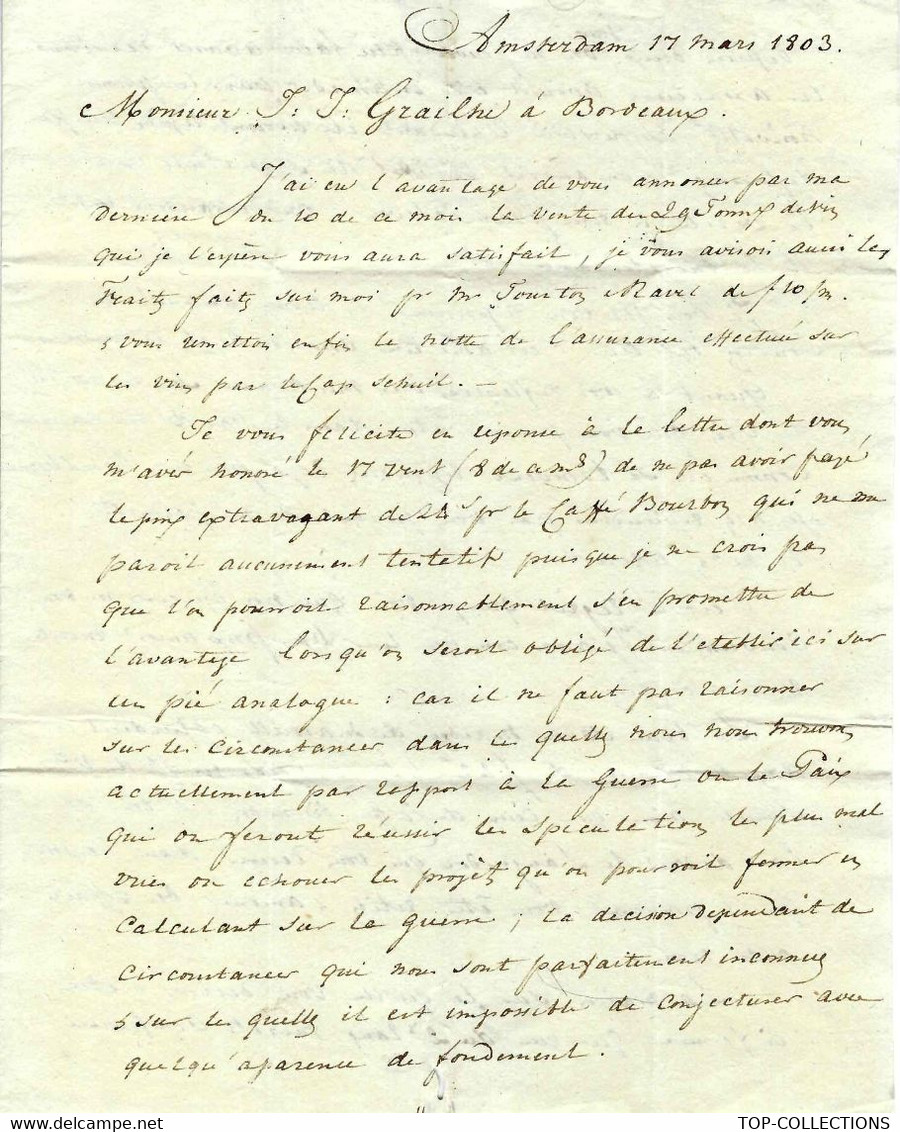 Amsterdam 17 mars 1803.
Monsieur J: J: Grailhe á Bordeaux.
J'ai eu l'avantage de vous annoncer par ma
derniere du 10 de ce mois la vente des 29 Tonnx de vin
qui je l'espère vous aura satisfait, je vous avisois aussi les
Traites faites sur moi pr Mrs Tourton & Ravel de f 10/m.
& vous remettois enfin la notte de l'assurance effectuée sur
les vins par le Cap Schuil. —
Je vous felicite en reponse à la lettre dont vous
m'avés honoré le 17 vent (8 de ce ms) de ne pas avoir payé
le prix extravagant de pr le Caffé Bourbon qui ne me
paroit aucunement tentatif puisque je ne crois pas
que l'on pourroit raisonnablement s'en promettre de
l'avantage lorsqu'on seroit obligé de l'etablir ici sur
un pié analogue : car il ne faut pas raisonner
sur les circonstances dans les quelles nous nous trouvons
actuellement par rapport à la Guerre ou la Paix
qui ou feront réussir les speculations les plus mal
vues ou echouer les projets qu'on pourroit former en
calculant sur la guerre ; la decision dependant de
circonstances qui nous sont parfaitement inconnues
& sur les quelles il est impossible de conjecturer avec
quelqu'aparence de fondement.
TOP-COLLECTIONS